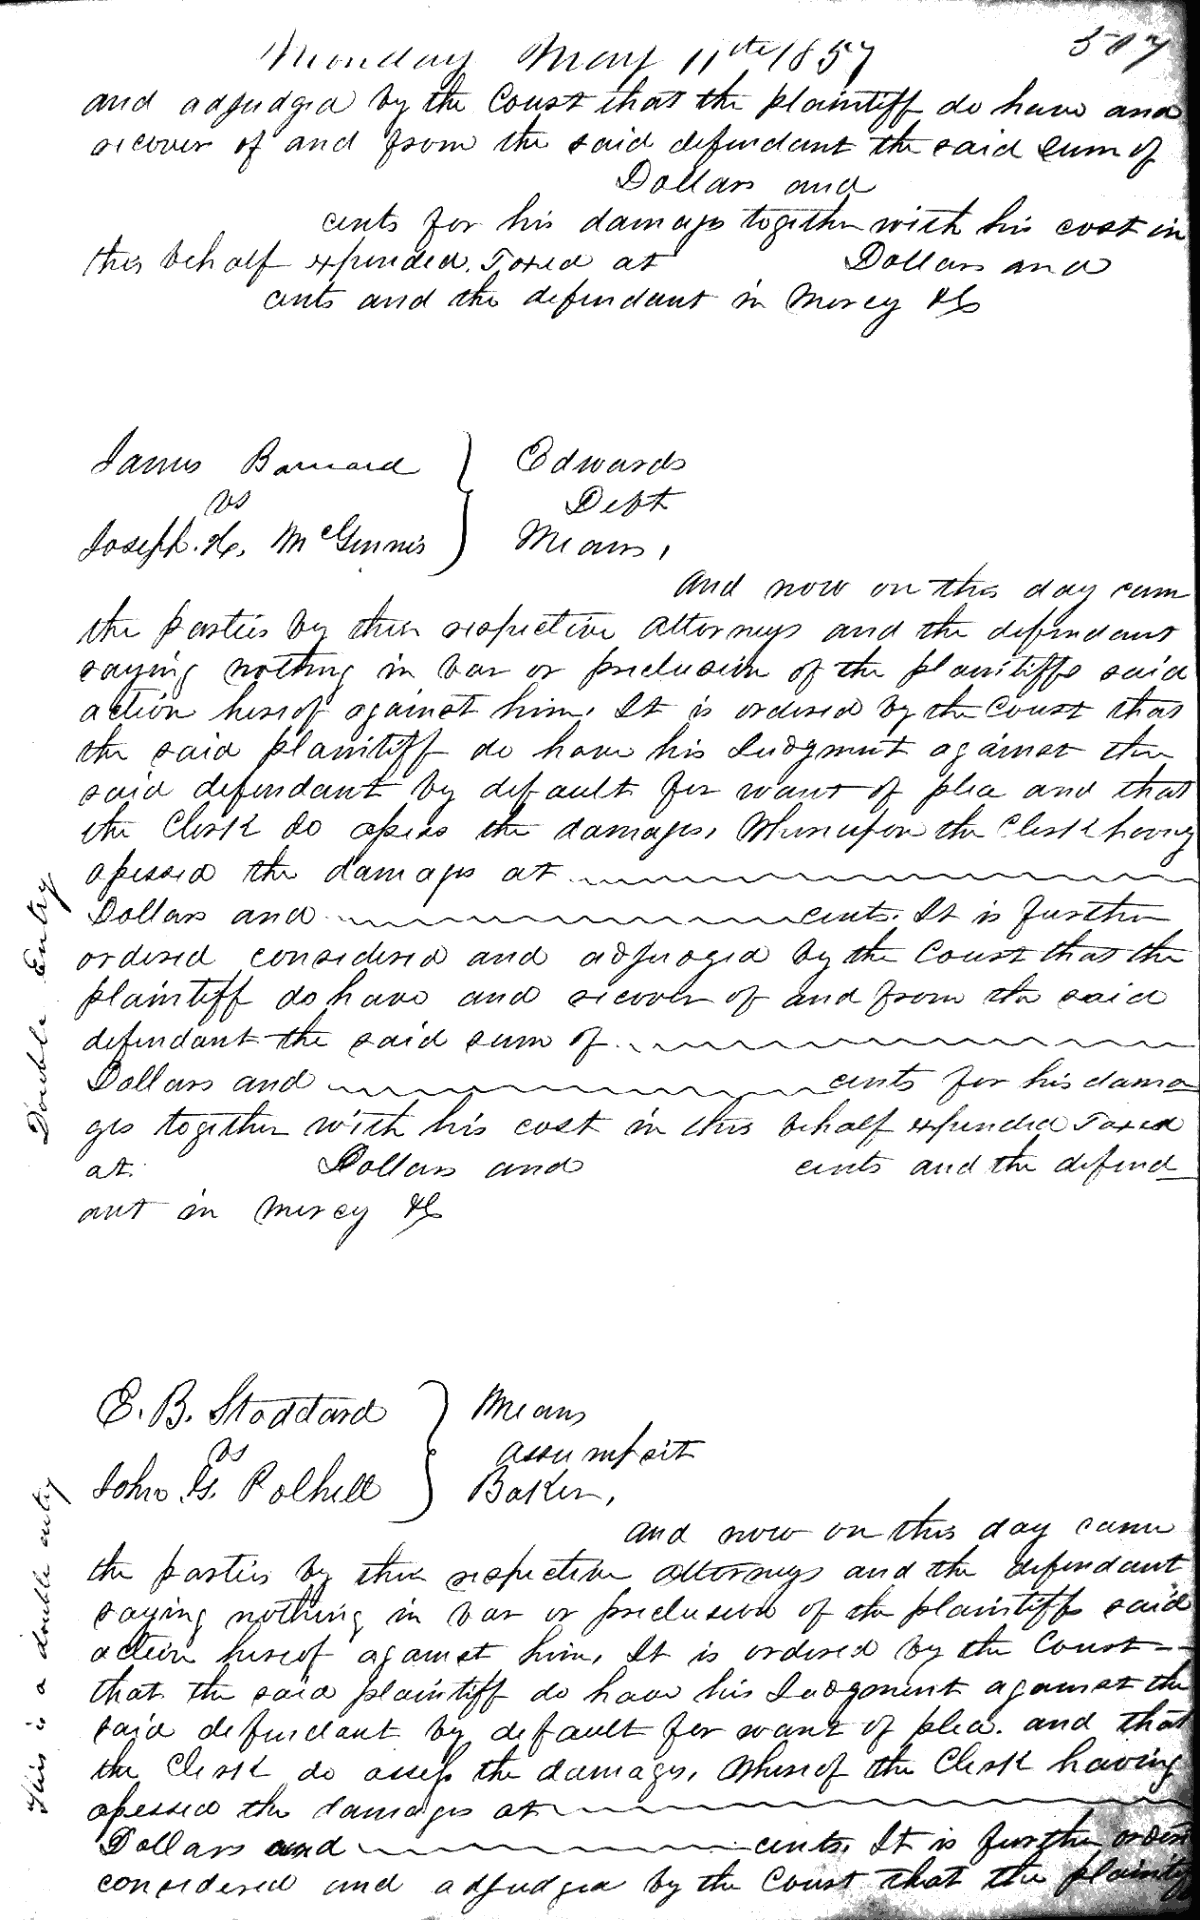 Monday May 11th 1857
507
and adjudged by the Court that the plaintiff do have and
recover of and from the said defendant the said sum of
Dollars and
cents for his damages together with his cost in
this behalf expended. Taxed at Dollars and
cents and the defendant in mercy &c
James Barnard } Edwards
vs Debt
Joseph. H. McGinnis } Means,
And now on this day came
the parties by their respective Attorneys and the defendant
saying nothing in bar or preclusion of the plaintiffs said
action hereof against him. It is ordered by the Court that
the said plaintiff do have his Judgment against the
said defendant by default for want of plea and that
the Clerk do assess the damages, Whereupon the Clerk having
assessed the damages at
Dollars and cents. It is further
ordered considered and adjudged by the Court that the
plaintiff do have and recover of and from the said
defendant the said sum of
Dollars and cents for his dama
ges together with his cost in this behalf expended Taxed
at Dollars and cents and the defend
ant in mercy &c
Double Entry
E. B. Stoddard } Means
vs Assumpsit
John. G. Polhill } Baker,
And now on this day came
the parties by their respective Attorneys and the defendant
saying nothing in bar or preclusion of the plaintiffs said
action hereof against him, It is ordered by the Court
that the said plaintiff do have his Judgment against the
said defendant by default for want of plea. and that
the Clerk do assess the damages, Whereof the Clerk having
assessed the damages at
Dollars and cents. It is further order
considered and adjudged by the Court that the plaintiff
This is a double entry